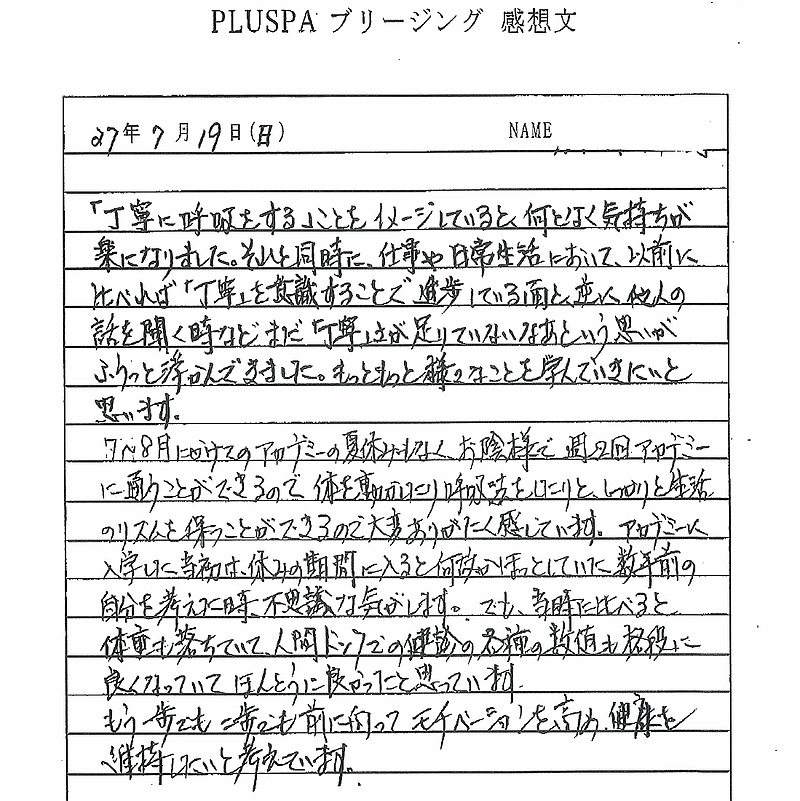 PLUSPA ブリージング 感想文
27年 7月 19日(日) NAME
「丁寧に呼吸をする」ことをイメージしていると、何となく気持ちが
楽になりました。それと同時に、仕事や日常生活において、以前に
比べれば「丁寧」を意識することで進歩している面と、逆に他人の
話を聞く時などまだ「丁寧」さが足りていないなあという思いが
ふうっと浮かんできました。もっともっと様々なことを学んでいきたいと
思います。
7〜8月にかけてのアカデミーの夏休みもなく、お陰様で週2回アカデミー
に通うことができるので、体を動かしたり呼吸法をしたりと、しっかりと生活
のリズムを保つことができるので大変ありがたく感じています。アカデミーに
入学した当初は、休みの期間に入ると何故かほっとしていた数年前の
自分を考えた時、不思議な気がします。でも、当時に比べると、
体重も落ちていて、人間ドックでの健診の各種の数値も格段に
良くなっていてほんとうに良かったと思っています。
もう一歩でも二歩でも前に向ってモチベーションを高め、健康を
維持したいと考えています。